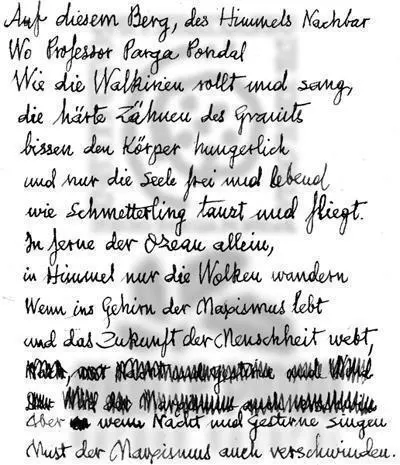 Auf diesem Berg, des Himmels Nachbar
Wo Professor Parga Pondal
Wie die Walkirien rollt und sang,
die härte Zähnen des Granits
bissen den Körper hungerlich
und nur die Seele frei und lebend
wie Schmetterling tanzt und fliegt.
In ferne der Ozean allein,
in Himmel nur die Wolken wandern
Wenn ins Gehirn der Maxismus lebt
und das Zukunft der Menschheit webt,
Aber wenn Nacht und gestirne singen
Must der Maxismus auch verschwinden.